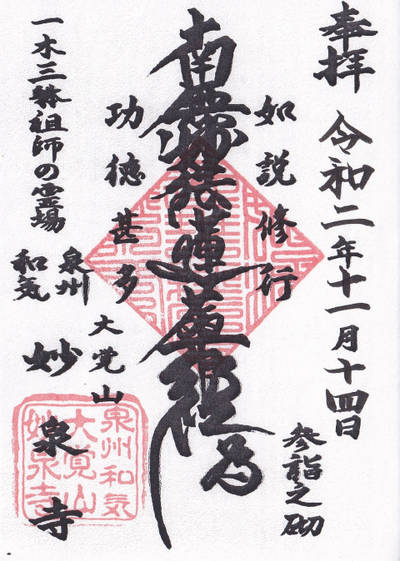 奉拝 令和二年十一月十四日
参詣之砌
如説修行
南無妙法蓮華経
功徳甚多
大覚山
一木三躰祖師の霊場
泉州
和気
妙泉寺
泉州和気
大覚山
妙泉寺